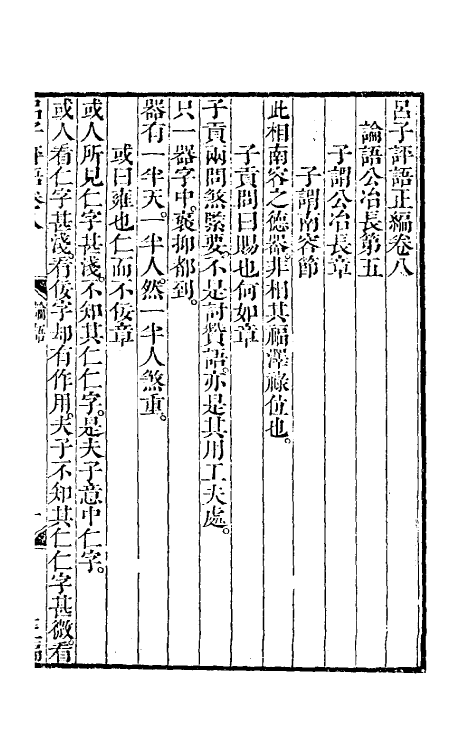 呂子評語正編卷八
論語公冶長第五
子謂公冶長章
子謂南容節
此相南容之德器非相其福澤祿位也。
子貢問曰賜也何如章
子貢兩問煞緊要。不是討贊語。亦是其用工夫處。
只一器字中。褒抑都到。
器有一半天。一半人。然一半人煞重。
或曰雍也仁而不佞章
或人所見仁字甚淺。不知其仁仁字。是夫子意中仁字。
或人看仁字甚淺。看佞字却有作用。夫子不知其仁仁字甚微。看
呂子評語卷八 論語 一